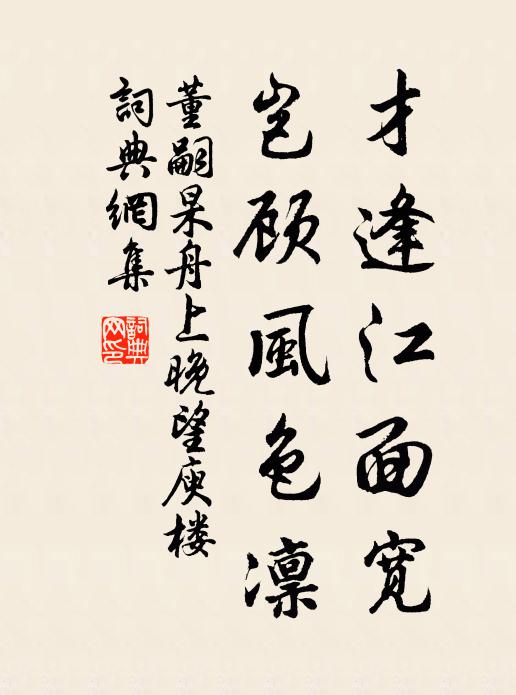 才逢江面寛
岂顾風色凛
董嗣杲舟上晚望庾楼
詞典網集
詞典网印